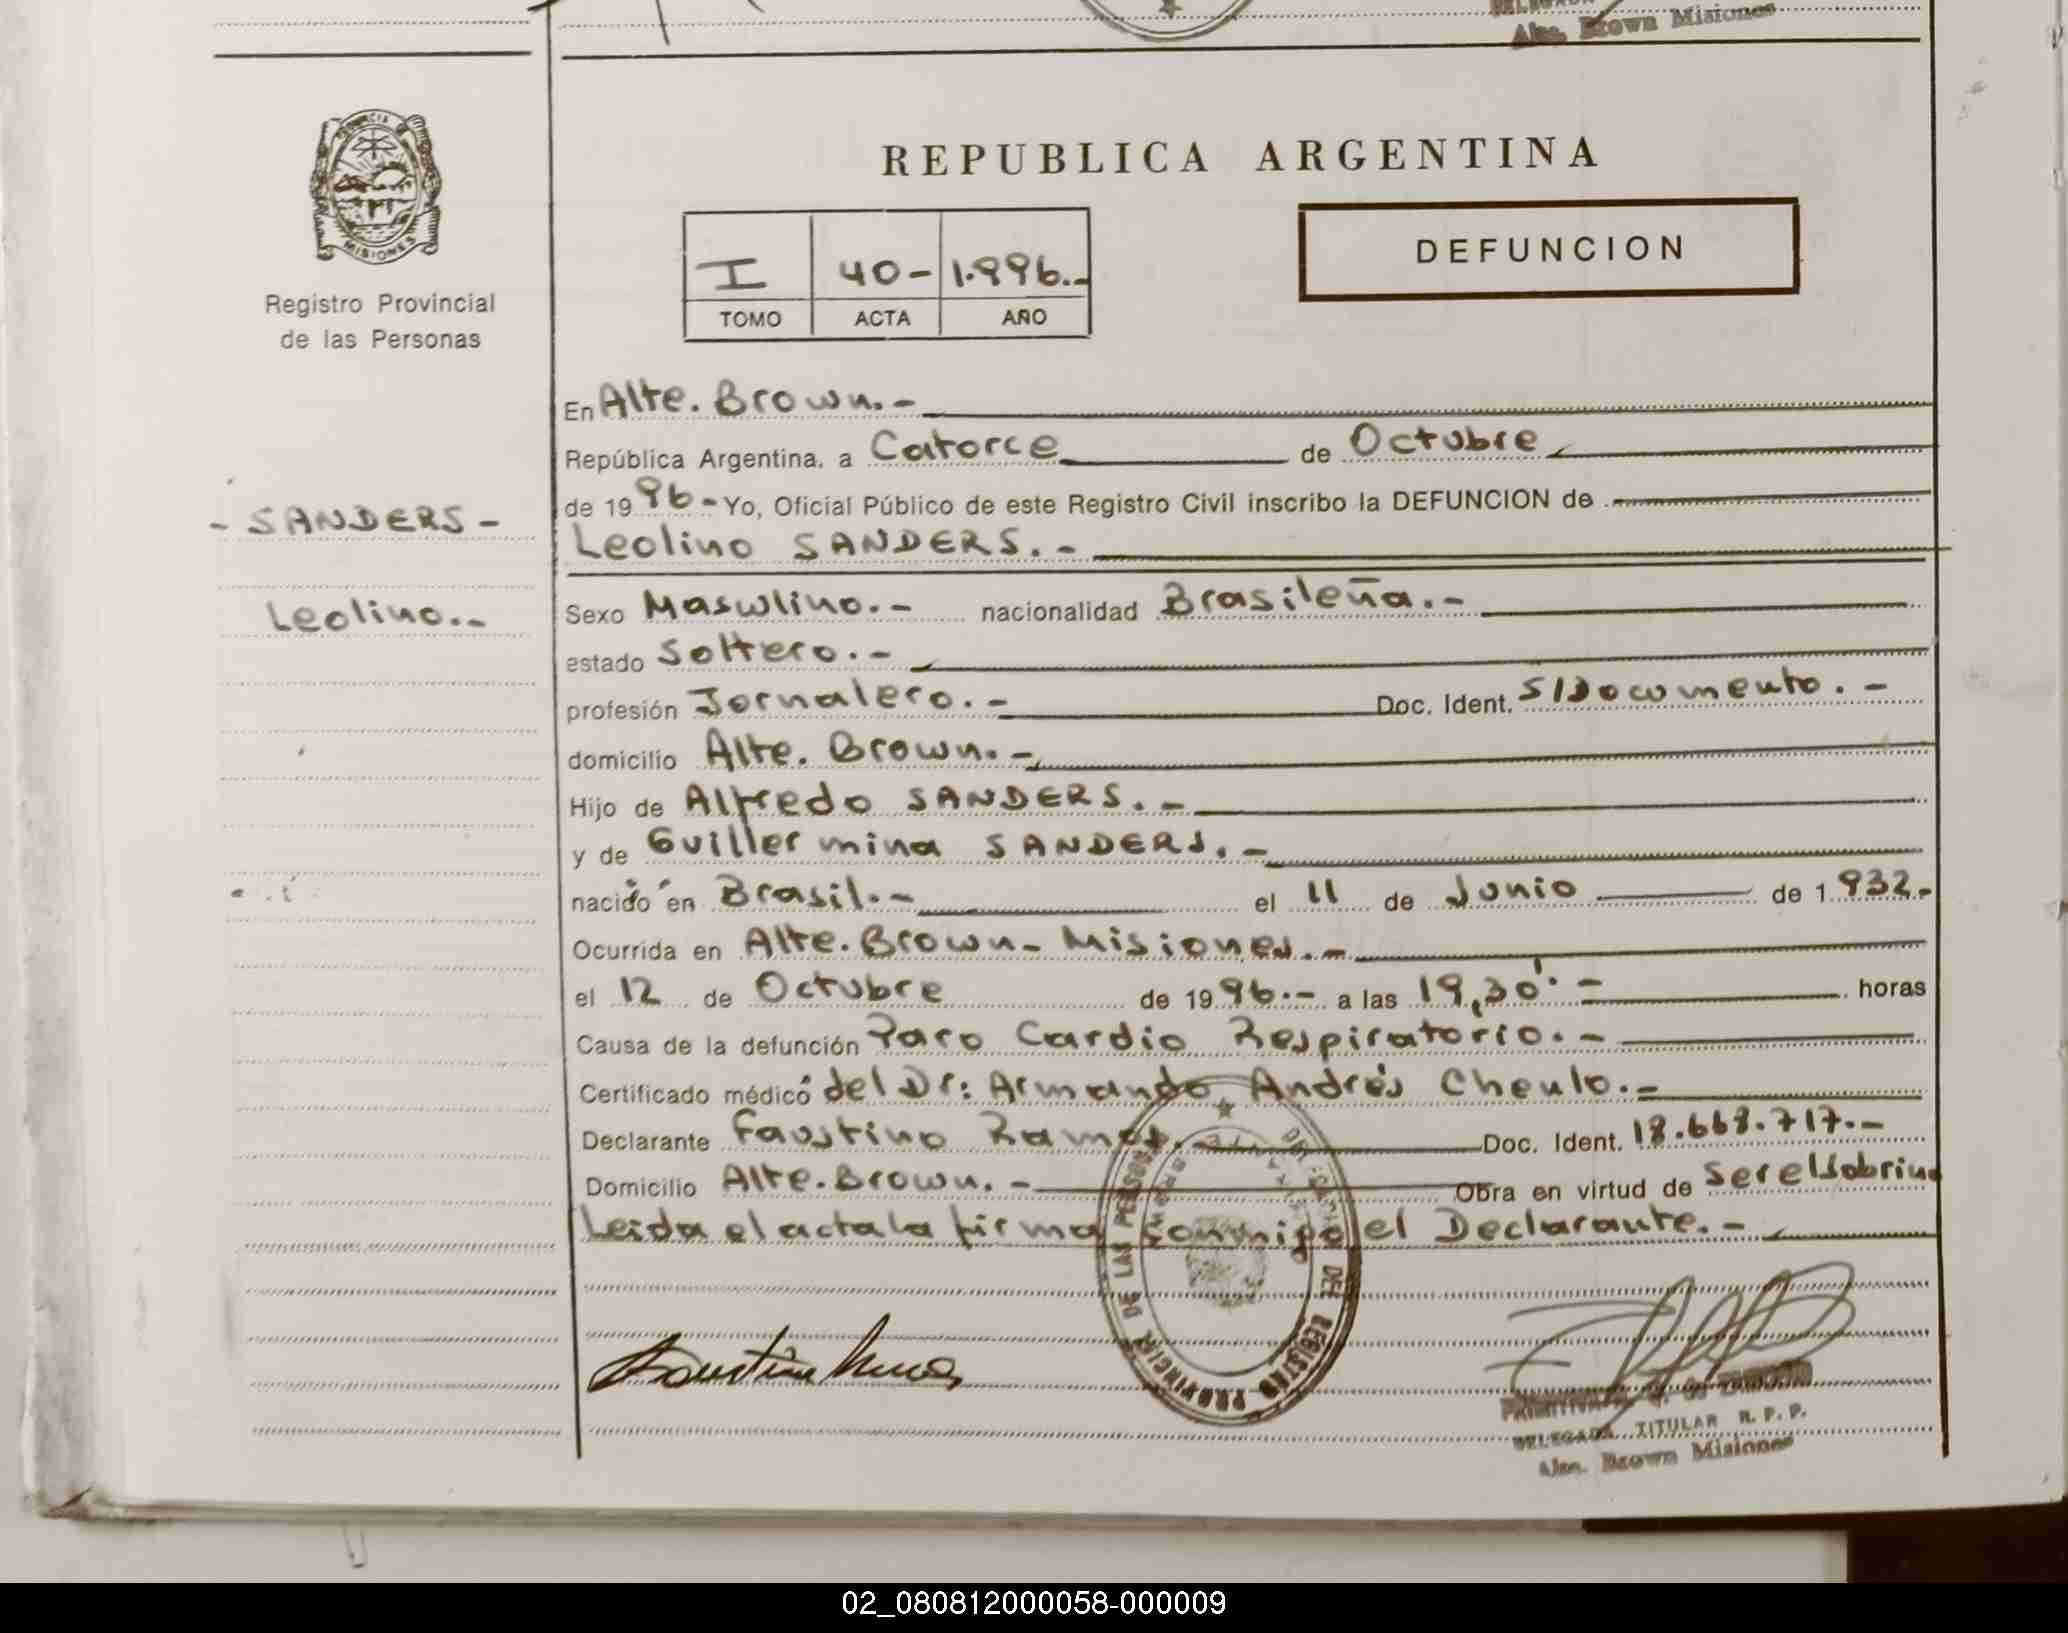 Alte. Brown Misiones
PROVINCIA DE
MISIONES
Registro Provincial
de las Personas
REPUBLICA ARGENTINA
DEFUNCION
I 40- 1.996.-
TOMO ACTA AÑO
- SANDERS -
Leolino.-
En Alte. Brown.-
República Argentina, a Catorce de Octubre
de 19 96- Yo, Oficial Público de este Registro Civil inscribo la DEFUNCION de
Leolino SANDERS.-
Sexo Masculino.- nacionalidad Brasileña.-
estado Soltero.-
profesión Jornalero.- Doc. Ident. S/Documento.-
domicilio Alte. Brown.-
Hijo de Alfredo SANDERS.-
y de Guillermina SANDERS.-
nacido en Brasil.- el 11 de Junio de 1.932.-
Ocurrida en Alte. Brown- Misiones.-
el 12 de Octubre de 19 96.- a las 19,30'.- horas
Causa de la defunción Paro Cardio Respiratorio.-
Certificado médico del Dr: Armando Andrés Chenlo.-
Declarante Faustino Ramos.- Doc. Ident. 18.668.717.-
Domicilio Alte. Brown.- Obra en virtud de ser el sobrino
Leida el acta la firma conmigo el Declarante.-
REGISTRO PROVINCIAL DE LAS PERSONAS
DELEGADA TITULAR R. P. P.
Alte. Brown Misiones
02_080812000058-000009